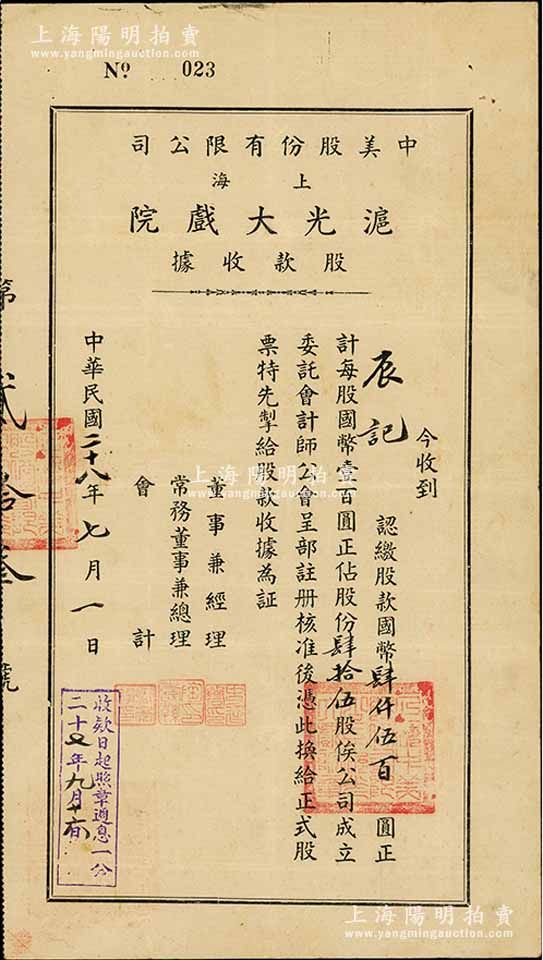 上海陽明拍賣
www.yangmingauction.com
No 023
中美股份有限公司
上海
滬光大戲院
股款收據
今收到
辰記 認繳股款國幣肆仟伍百圓正
計每股國幣壹百圓正佔股份肆拾伍股俟公司成立
委託會計師公會呈部註册核准後憑此換給正式股
票特先掣給股款收據為証
董事兼經理
常務董事兼總理
會計
中華民國二十八年七月一日
收欵日起照章週息一分
二十 年九月
第貳拾叁號
上海陽明拍賣
www.yangmingauction.com
上海陽明拍賣
www.yangmingauction.com